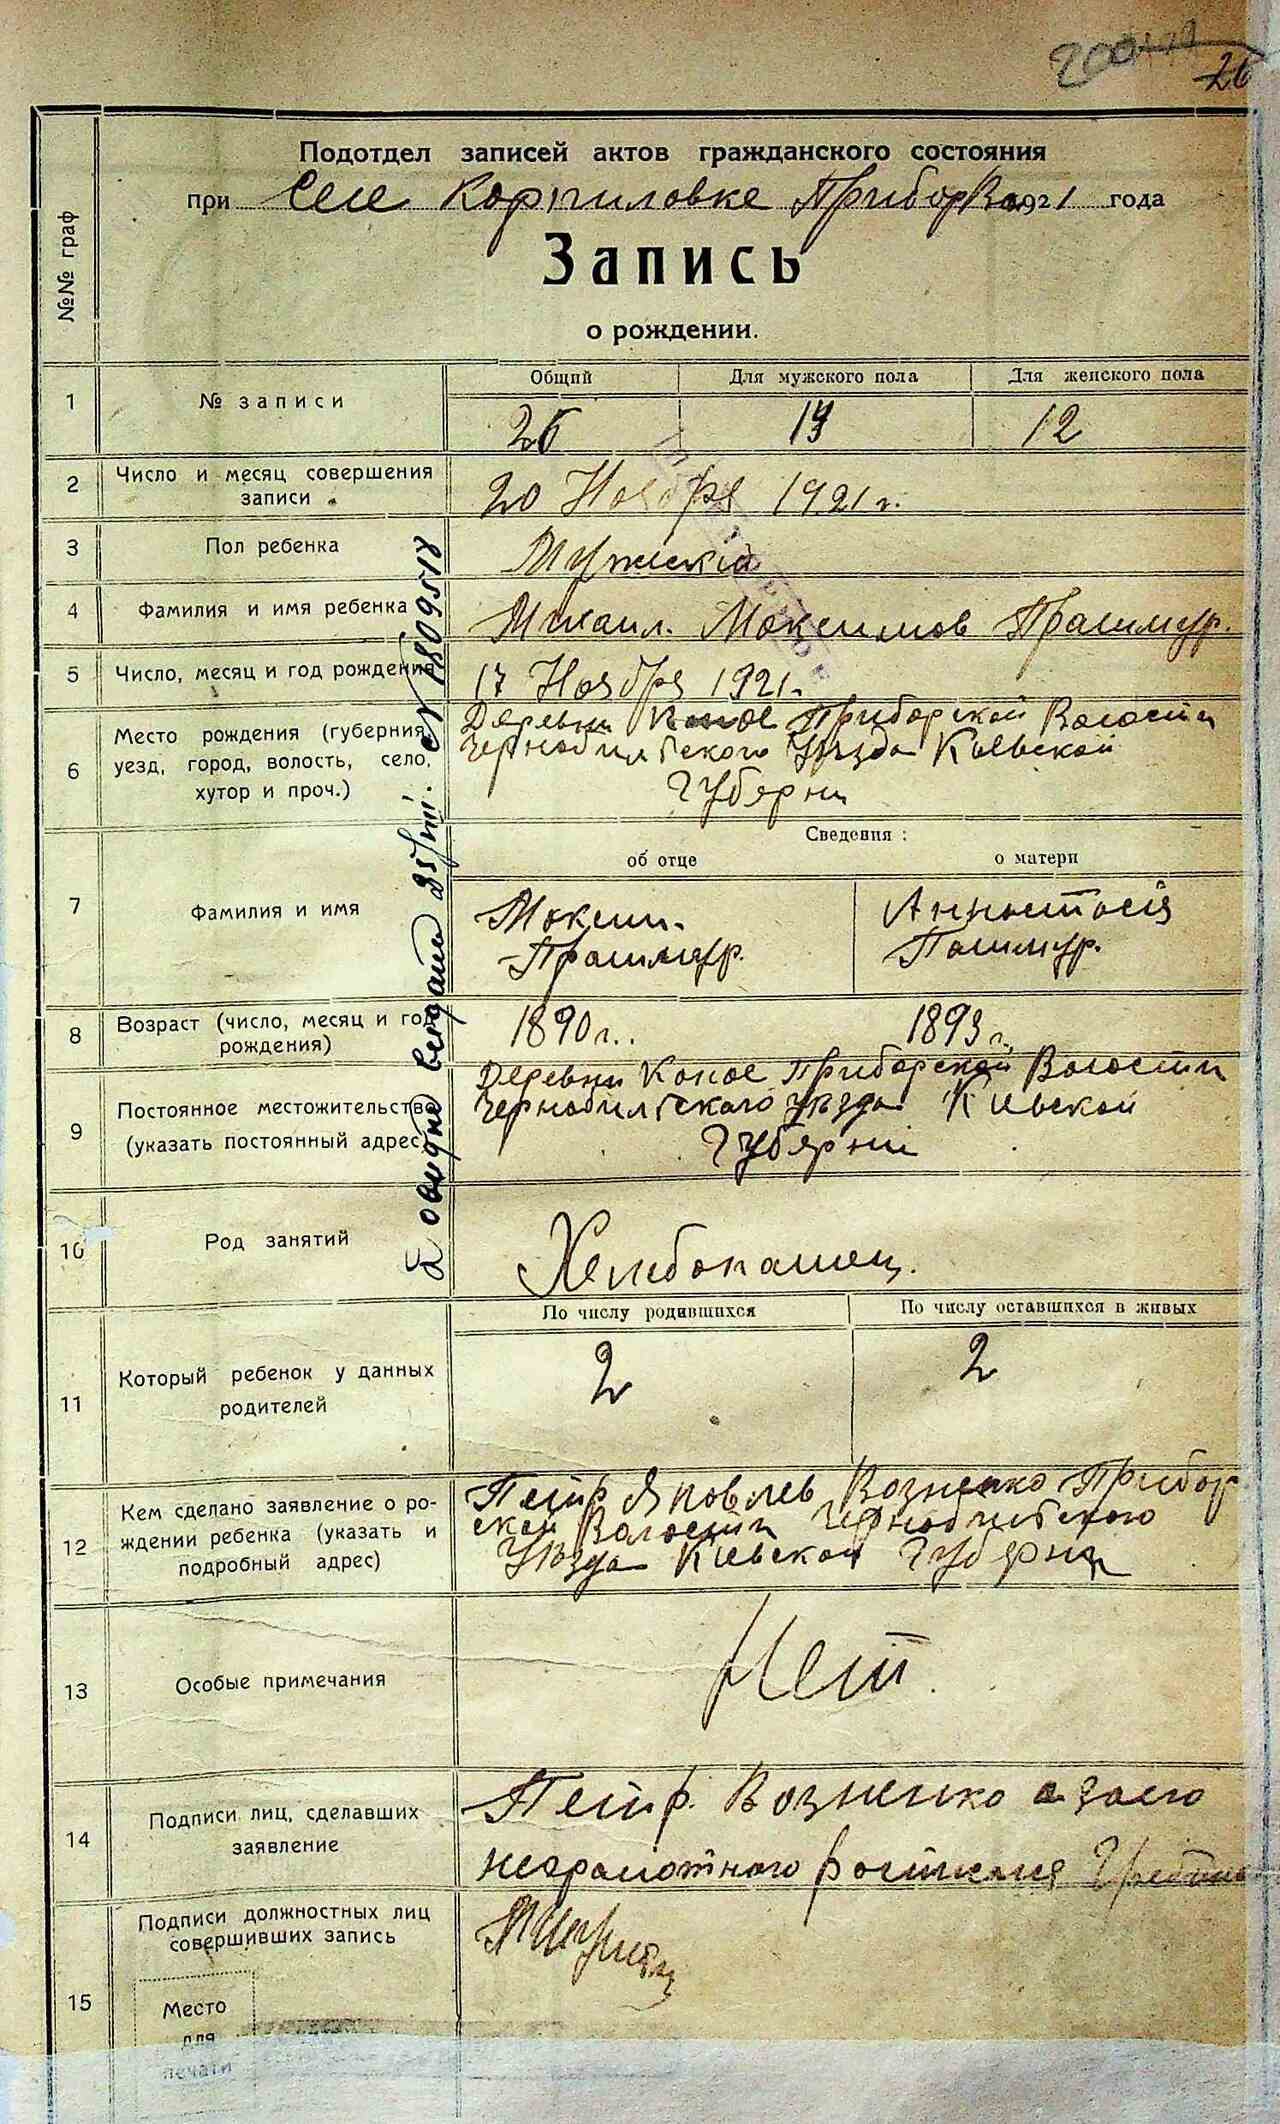 26
Подотдел записей актов гражданского состояния
при Селе Корпиловке Приборско 1921 года
Запись
о рождении.
№№ граф
Общий Для мужского пола Для женского пола
1 № записи
26 12
2 Число и месяц совершения
записи
20 Ноября 1921 г.
3 Пол ребенка
Мужский
4 Фамилия и имя ребенка
Михаил. Максимов Прашмур.
5 Число, месяц и год рождения
17 Ноября 1921.
6 Место рождения (губерния,
уезд, город, волость, село,
хутор и проч.)
Деревни Приборской Волости
Чернобильского Уезда Киевской
Губерни
Сведения :
об отце о матери
7 Фамилия и имя
Максим. Прашмур.
Анностасія Пашмур.
8 Возраст (число, месяц и год
рождения)
1890 г. 1893 г.
9 Постоянное местожительство
(указать постоянный адрес)
Деревни Приборской Волости
Чернобильского Уезда Киевской
Губерніи
10 Род занятий
Хлибопашец.
По числу родившихся По числу оставшихся в живых
11 Который ребенок у данных
родителей
2 2
12 Кем сделано заявление о ро-
ждении ребенка (указать и
подробный адрес)
Петр Яковлев Возненко Прибор
ской Волости Чернобильского
Уезда Киевской Губерни
13 Особые примечания
Нет
14 Подписи лиц, сделавших
заявление
Петр. Возненко а за его
неграмотного
15 Подписи должностных лиц
совершивших запись
Место
для
печати